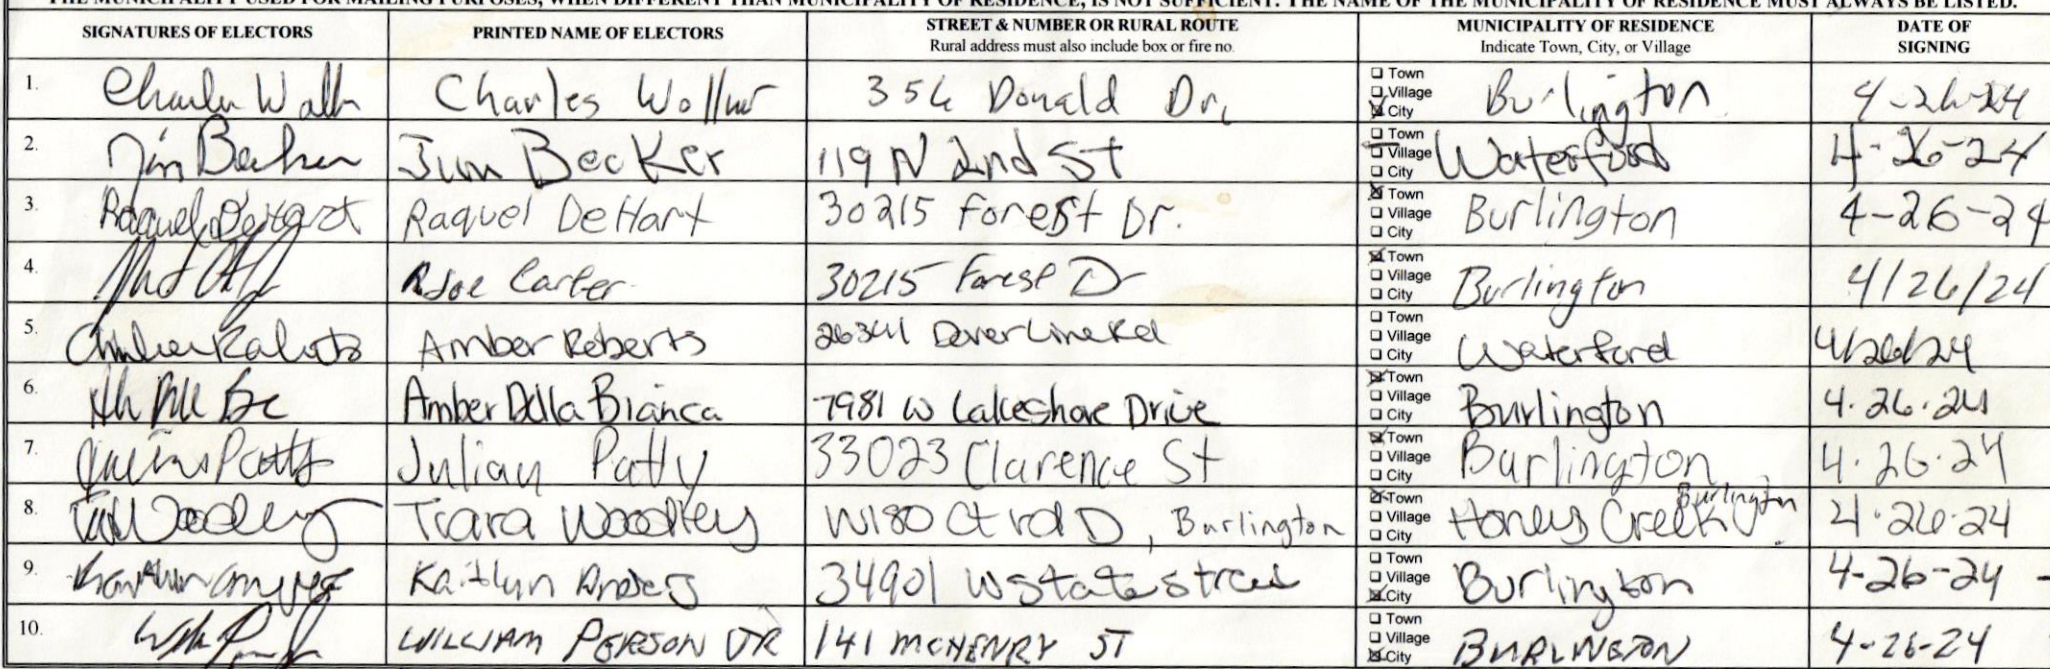 THE MUNICIPALITY USED FOR MAILING PURPOSES, WHEN DIFFERENT THAN MUNICIPALITY OF RESIDENCE, IS NOT SUFFICIENT. THE NAME OF THE MUNICIPALITY OF RESIDENCE MUST ALWAYS BE LISTED.
SIGNATURES OF ELECTORS PRINTED NAME OF ELECTORS STREET & NUMBER OR RURAL ROUTE Rural address must also include box or fire no. MUNICIPALITY OF RESIDENCE Indicate Town, City, or Village DATE OF SIGNING
1. Charles 354 Donald Dr. Town Village City Burlington 4-26-24
2. Jim Becker Jim Becker 119 N 2nd St Town Village City Waterford 4-26-24
3. Raquel DeHart Raquel DeHart 30215 Forest Dr. Town Village City Burlington 4-26-24
4. Joe Carter 30215 Forest Dr Town Village City Burlington 4/26/24
5. Amber Roberts Amber Roberts 26341 Dover Line Rd Town Village City Waterford 4/26/24
6. Amber Della Bianca 7981 W Lakeshore Drive Town Village City Burlington 4.26.24
7. Julian Patty 33023 Clarence St Town Village City Burlington 4.26.24
8. Woodley Tiara Woodley W180 Ct rd D, Burlington Town Village City Honey Creek Burlington 4.26.24
9. Kaitlyn 34901 W State Street Town Village City Burlington 4-26-24
10. WILLIAM PERSON JR 141 MCHENRY ST Town Village City BURLINGTON 4-26-24